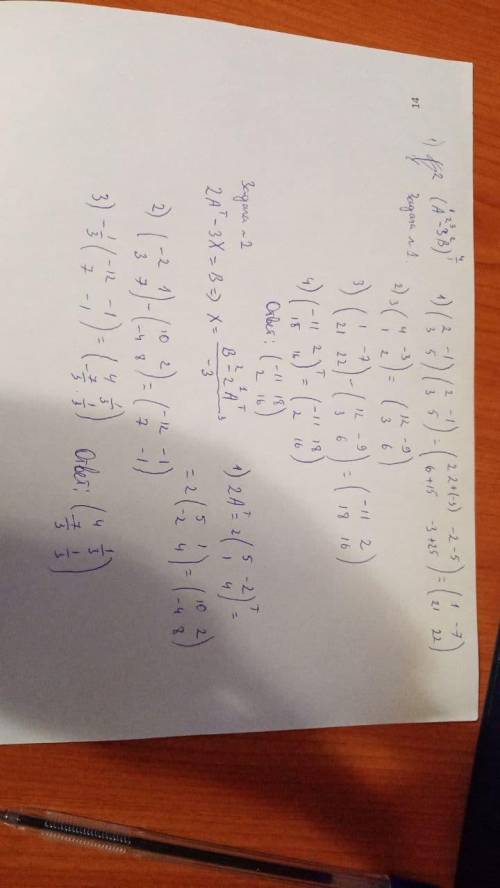 Задача №1
1) (A² - 3B)ᵀ
1) (2 -1; 3 5)(2 -1; 3 5) = (2·2+(-3) -2-5; 6+15 -3+25) = (1 -7; 21 22)
2) 3(4 -3; 1 2) = (12 -9; 3 6)
3) (1 -7; 21 22) - (12 -9; 3 6) = (-11 2; 18 16)
4) (-11 2; 18 16)ᵀ = (-11 18; 2 16)
Ответ: (-11 18; 2 16)
Задача №2
2Aᵀ - 3X = B => X = (B - 2Aᵀ)/(-3)
1) 2Aᵀ = 2(5 -2; 1 4)ᵀ =
= 2(5 1; -2 4) = (10 2; -4 8)
2) (-2 1; 3 7) - (10 2; -4 8) = (-12 -1; 7 -1)
3) -1/3(-12 -1; 7 -1) = (4 1/3; -7/3 1/3) Ответ: (4 1/3; -7/3 1/3)